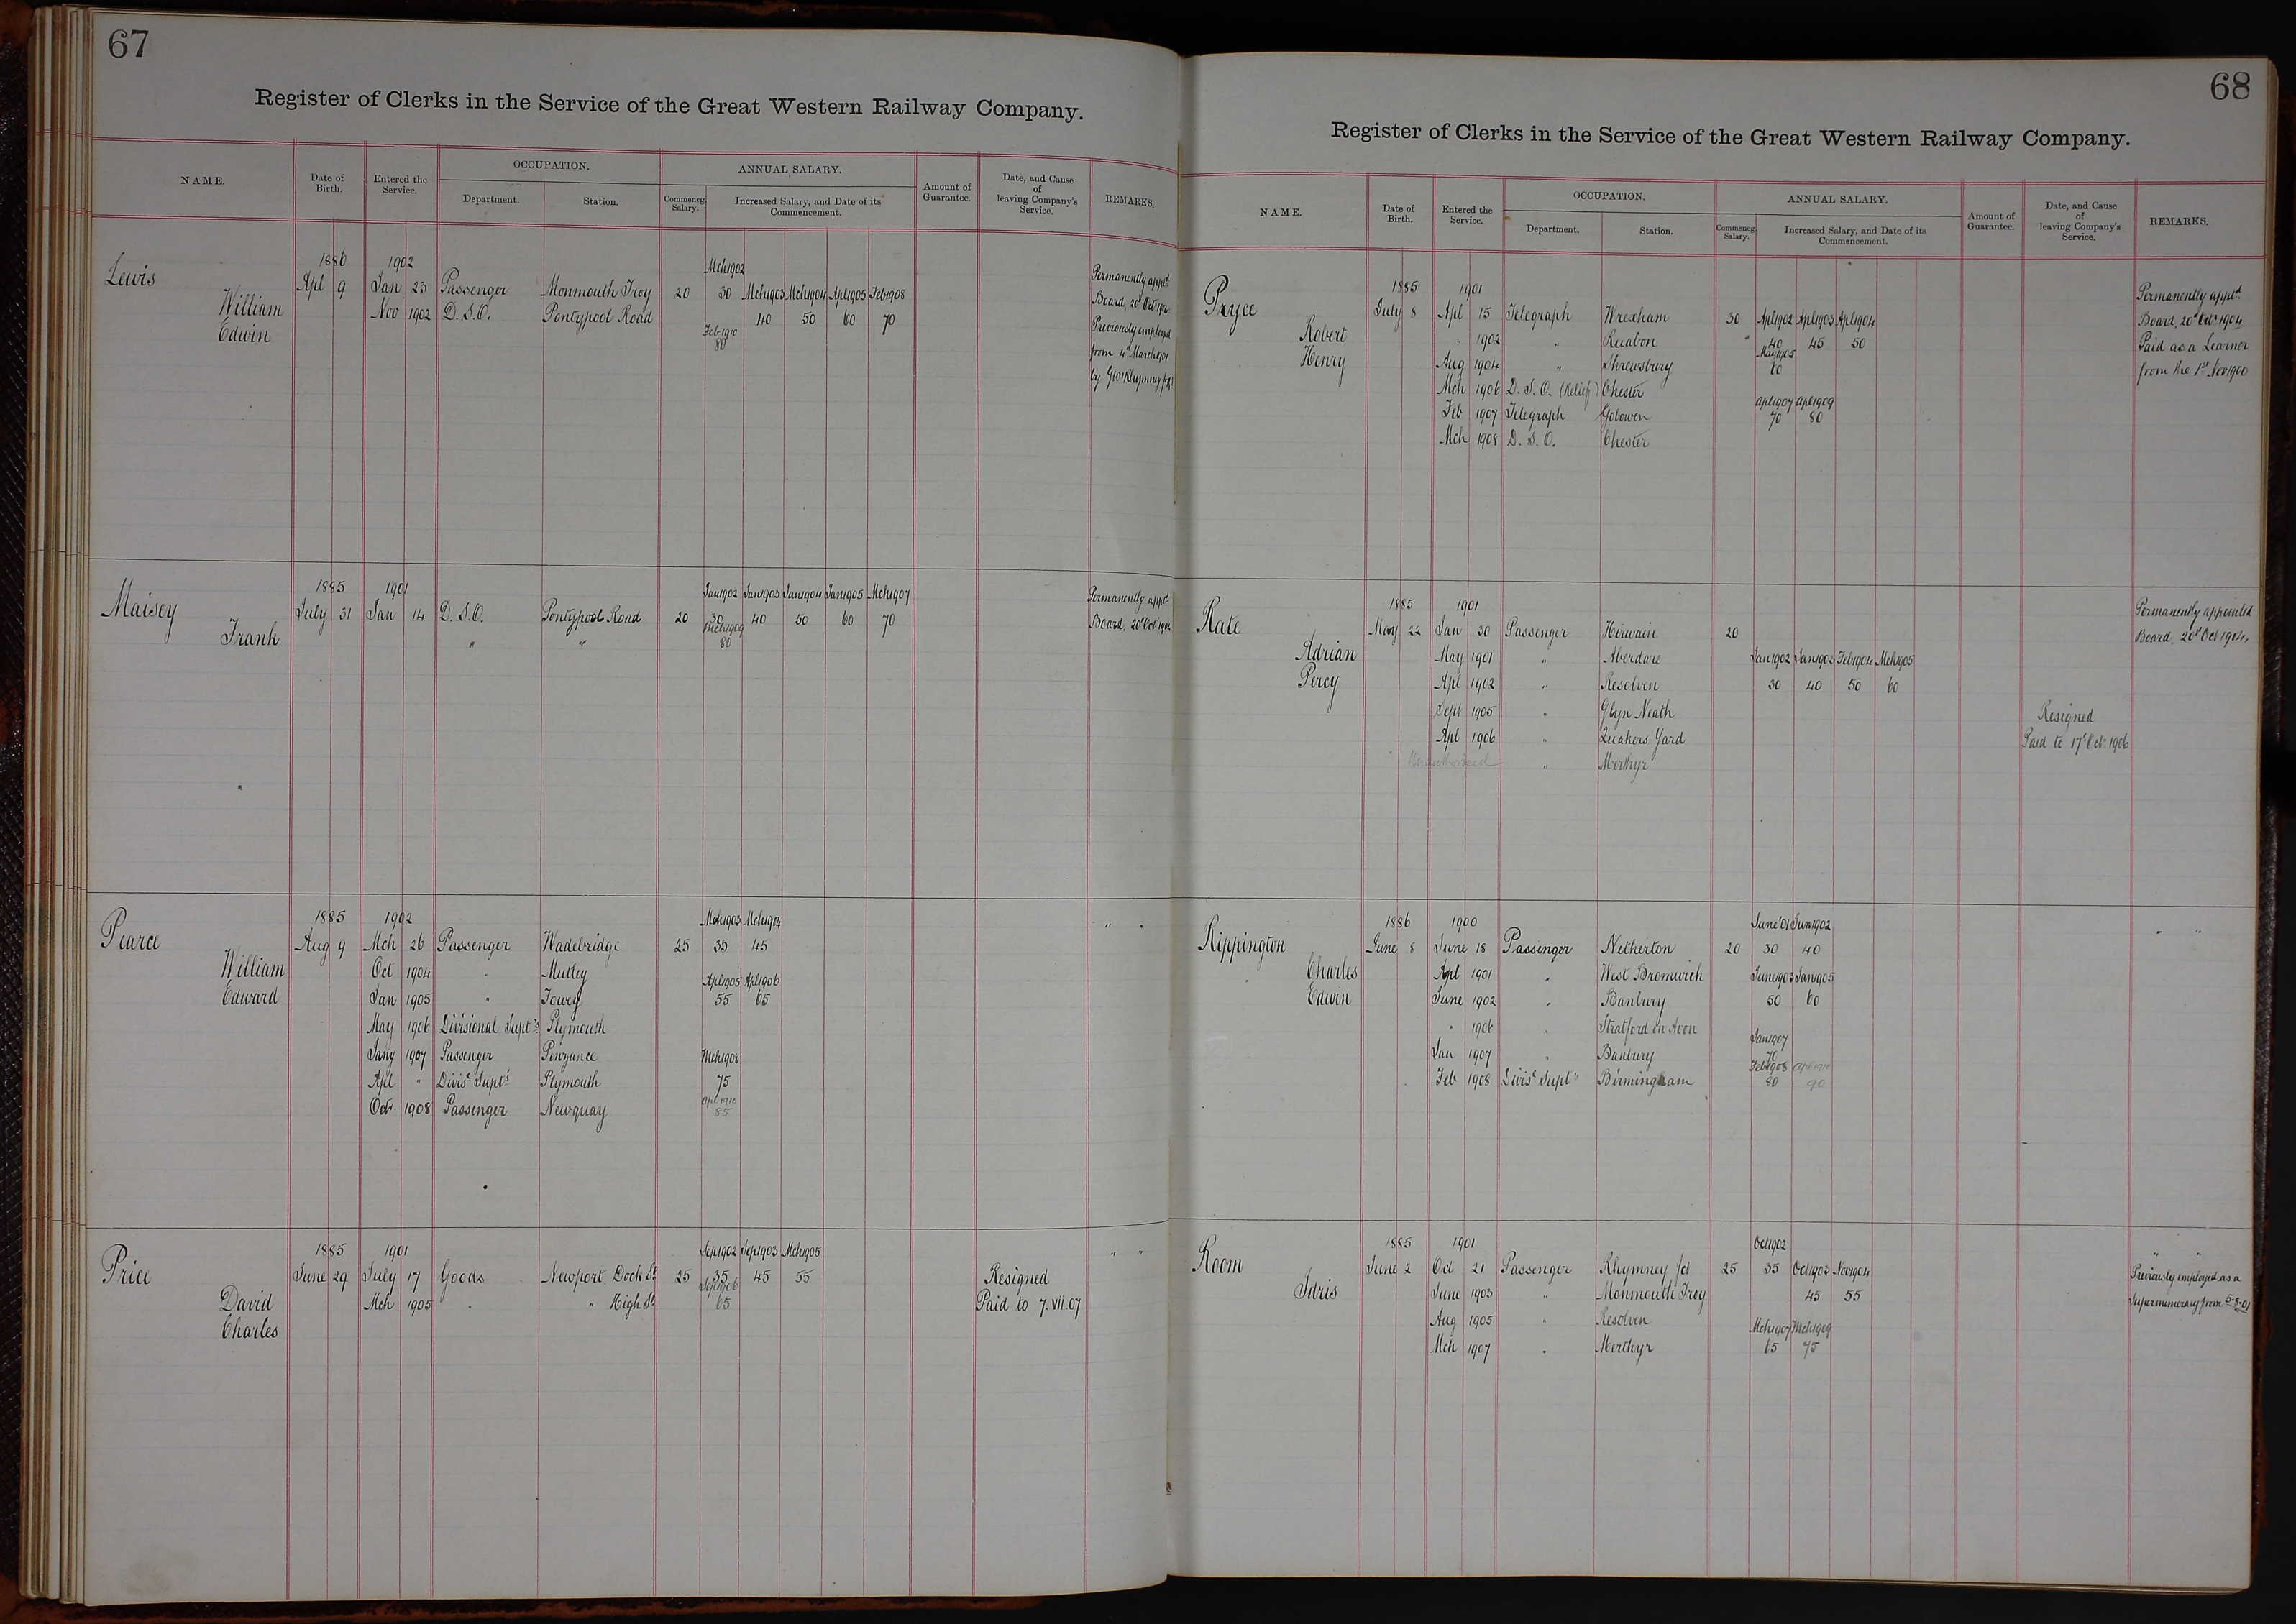 67
Register of Clerks in the Service of the Great Western Railway Company.
NAME. Date of Birth. Entered the Service. OCCUPATION. Department. Station. ANNUAL SALARY. Commencg Salary. Increased Salary, and Date of its Commencement. Amount of Guarantee. Date, and Cause of leaving Company's Service. REMARKS.
1886 1902 Mch 1902
Lewis Apl 9 Jan 23 Passenger Monmouth Troy 20 30 Mch 1903 Mch 1904 Apl 1905 Feb 1908 Permanently appt.d
William Nov 1902 D.S.O. Pontypool Road 40 50 60 70 Board, 20th Oct 1904
Edwin Feb 1910 Previously employed
80 from 4th March 1901
by
1885 1901 Jan 1902 Jan 1903 Jan 1904 Jan 1905 Mch 1907 Permanently appt.d
Maisey July 31 Jan 14 D.S.O. Pontypool Road 20 30 40 50 60 70 Board, 20th Oct 1904
Frank " " Mch 1909
80
1885 1902 Mch 1903 Mch 1904 " "
Pearce Aug 9 Mch 26 Passenger Wadebridge 25 35 45
William Oct 1904 " Mutley Apl 1905 Apl 1906
Edward Jan 1905 " Fowey 55 65
May 1906 Divisional Supt's Plymouth
Jany 1907 Passenger Penzance Mch 1908
Apl " Divisl Supt's Plymouth 75
Oct. 1908 Passenger Newquay Apl 1910
85
1885 1901 Sep 1902 Sep 1903 Mch 1905 " "
Price June 29 July 17 Goods Newport Dock St 25 35 45 55 Resigned
David Mch 1905 " " High St Sep 1906 65 Paid to 7.VII.07
Charles
68
Register of Clerks in the Service of the Great Western Railway Company.
NAME. Date of Birth. Entered the Service. OCCUPATION. Department. Station. ANNUAL SALARY. Commencg Salary. Increased Salary, and Date of its Commencement. Amount of Guarantee. Date, and Cause of leaving Company's Service. REMARKS.
1885 1901 Permanently appt.d
Pryce July 8 Apl 15 Telegraph Wrexham 30 Apl 1902 Apl 1903 Apl 1904 Board, 20th Oct. 1904
Robert " 1902 " Ruabon 40 45 50 Paid as a Learner
Henry Aug 1904 " Shrewsbury May 1905 60 from the 1st Nov 1900
Mch 1906 D.S.O. (Relief) Chester Apl 1907 Apl 1909
Feb 1907 Telegraph Gobowen 70 80
Mch 1908 D.S.O. Chester
1885 1901 Permanently appointed
Rate May 22 Jan 30 Passenger Hirwain 20 Board, 20th Oct 1904.
Adrian May 1901 " Aberdare Jan 1902 Jan 1903 Feb 1904 Mch 1905
Percy Apl 1902 " Resolven 30 40 50 60
Sept 1905 " Glyn Neath Resigned
Apl 1906 " Quakers Yard Paid to 17th Oct. 1906
" Merthyr
1886 1900 June '01 Jun 1902 " "
Rippington June 8 June 18 Passenger Netherton 20 30 40
Charles Apl 1901 " West Bromwich June 1903 Jan 1905
Edwin June 1902 " Banbury 50 60
" 1906 " Stratford on Avon Jan 1907
Jan 1907 " Banbury 70
Feb 1908 Divisl Supt's Birmingham Feb 1908 80 Apl 1910 90
1885 1901 Oct 1902 " "
Room June 2 Oct 21 Passenger Rhymney Jct 25 35 Oct 1903 Nov 1904 Previously employed as a
Idris June 1903 " Monmouth Troy 45 55 Supernumerary from 5-8-01
Aug 1905 " Resolven Mch 1907 Mch 1909
Mch 1907 " Merthyr 65 75